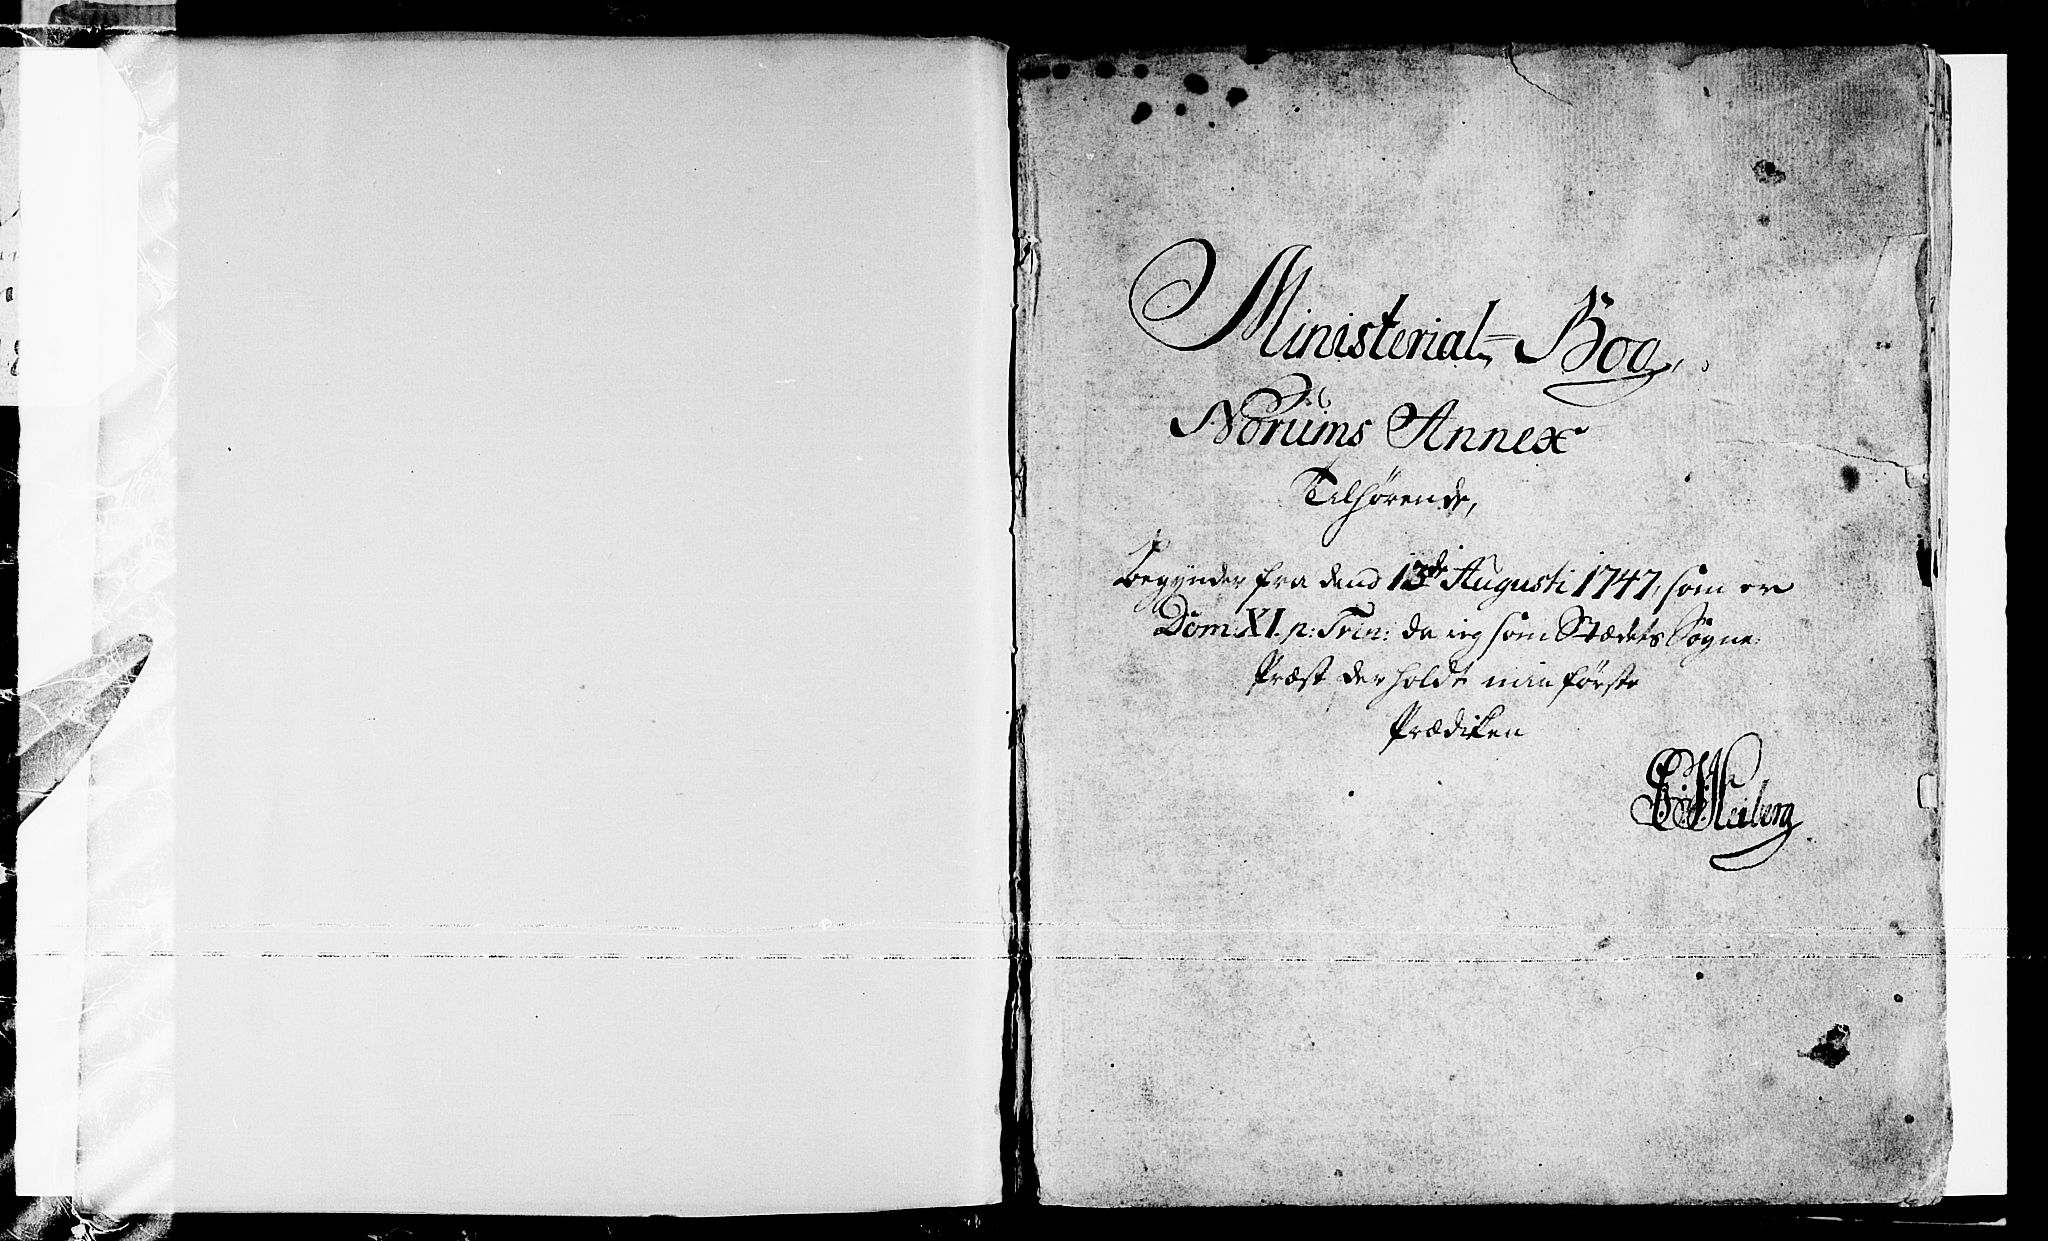 Ministerial-Bog,
Norums Annex
Tilhørende,
begynder fra dend 13de Augusti 1747, som er
Dom: XI. p: Trin: da ieg som Stædets Sogne-
Præst der holdt min første
Prædiken
Heiberg